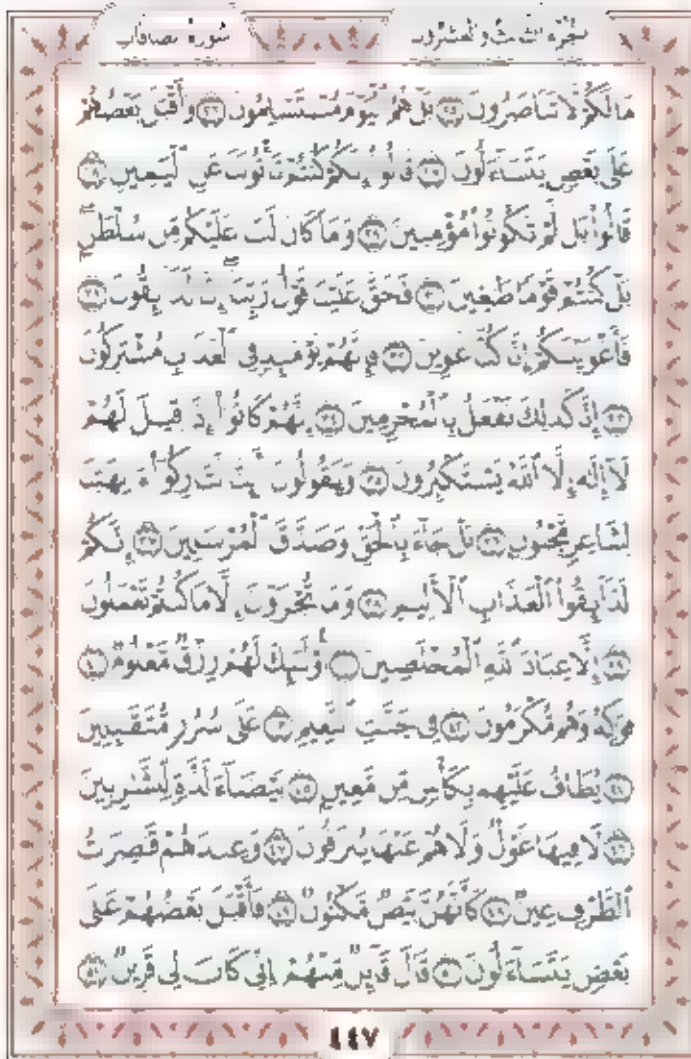 سُورَةُ الصَّافَّاتِ
الجُزْءُ الثَّالِثُ وَالعِشْرُونَ
مَا لَكُمْ لَا تَنَاصَرُونَ ٢٥ بَلْ هُمُ ٱلْيَوْمَ مُسْتَسْلِمُونَ ٢٦ وَأَقْبَلَ بَعْضُهُمْ
عَلَىٰ بَعْضٍ يَتَسَآءَلُونَ ٢٧ قَالُوٓا۟ إِنَّكُمْ كُنتُمْ تَأْتُونَنَا عَنِ ٱلْيَمِينِ ٢٨
قَالُوا۟ بَل لَّمْ تَكُونُوا۟ مُؤْمِنِينَ ٢٩ وَمَا كَانَ لَنَا عَلَيْكُم مِّن سُلْطَٰنٍۭ
بَلْ كُنتُمْ قَوْمًا طَٰغِينَ ٣٠ فَحَقَّ عَلَيْنَا قَوْلُ رَبِّنَآ إِنَّا لَذَآئِقُونَ ٣١
فَأَغْوَيْنَٰكُمْ إِنَّا كُنَّا غَٰوِينَ ٣٢ فَإِنَّهُمْ يَوْمَئِذٍ فِى ٱلْعَذَابِ مُشْتَرِكُونَ
٣٣ إِنَّا كَذَٰلِكَ نَفْعَلُ بِٱلْمُجْرِمِينَ ٣٤ إِنَّهُمْ كَانُوٓا۟ إِذَا قِيلَ لَهُمْ
لَآ إِلَٰهَ إِلَّا ٱللَّهُ يَسْتَكْبِرُونَ ٣٥ وَيَقُولُونَ أَئِنَّا لَتَارِكُوٓا۟ ءَالِهَتِنَا
لِشَاعِرٍ مَّجْنُونٍۭ ٣٦ بَلْ جَآءَ بِٱلْحَقِّ وَصَدَّقَ ٱلْمُرْسَلِينَ ٣٧ إِنَّكُمْ
لَذَآئِقُوا۟ ٱلْعَذَابِ ٱلْأَلِيمِ ٣٨ وَمَا تُجْزَوْنَ إِلَّا مَا كُنتُمْ تَعْمَلُونَ
٣٩ إِلَّا عِبَادَ ٱللَّهِ ٱلْمُخْلَصِينَ ٤٠ أُو۟لَٰٓئِكَ لَهُمْ رِزْقٌ مَّعْلُومٌ ٤١
فَوَٰكِهُ وَهُم مُّكْرَمُونَ ٤٢ فِى جَنَّٰتِ ٱلنَّعِيمِ ٤٣ عَلَىٰ سُرُرٍ مُّتَقَٰبِلِينَ
٤٤ يُطَافُ عَلَيْهِم بِكَأْسٍ مِّن مَّعِينٍۭ ٤٥ بَيْضَآءَ لَذَّةٍ لِّلشَّٰرِبِينَ
٤٦ لَا فِيهَا غَوْلٌ وَلَا هُمْ عَنْهَا يُنزَفُونَ ٤٧ وَعِندَهُمْ قَٰصِرَٰتُ
ٱلطَّرْفِ عِينٌ ٤٨ كَأَنَّهُنَّ بَيْضٌ مَّكْنُونٌ ٤٩ فَأَقْبَلَ بَعْضُهُمْ عَلَىٰ
بَعْضٍ يَتَسَآءَلُونَ ٥٠ قَالَ قَآئِلٌ مِّنْهُمْ إِنِّى كَانَ لِى قَرِينٌ ٥١
٤٤٧